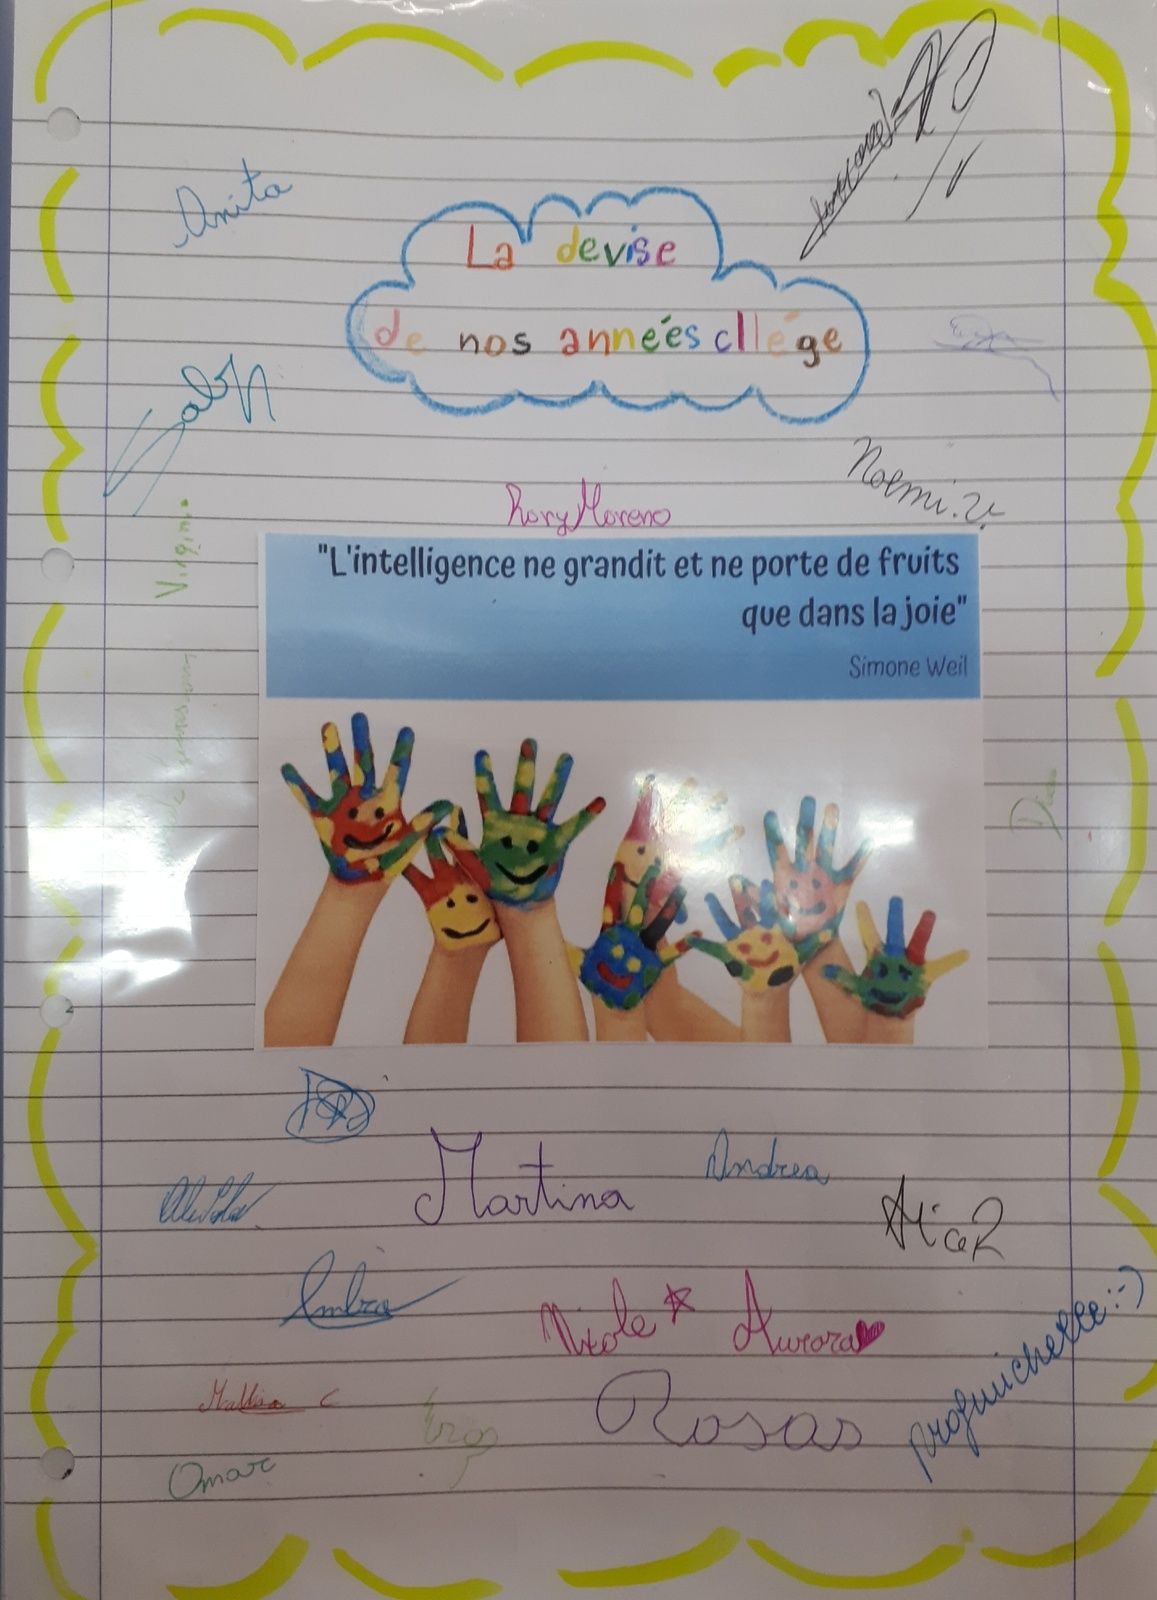 Anita
La devise
de nos années cllége
Noemi.V.
Rory Moreno
Virginia
"L'intelligence ne grandit et ne porte de fruits
que dans la joie"
Simone Weil
Martina
Andrea
Alice R
Ambra
Nicole
Aurora
Rosas
Omar